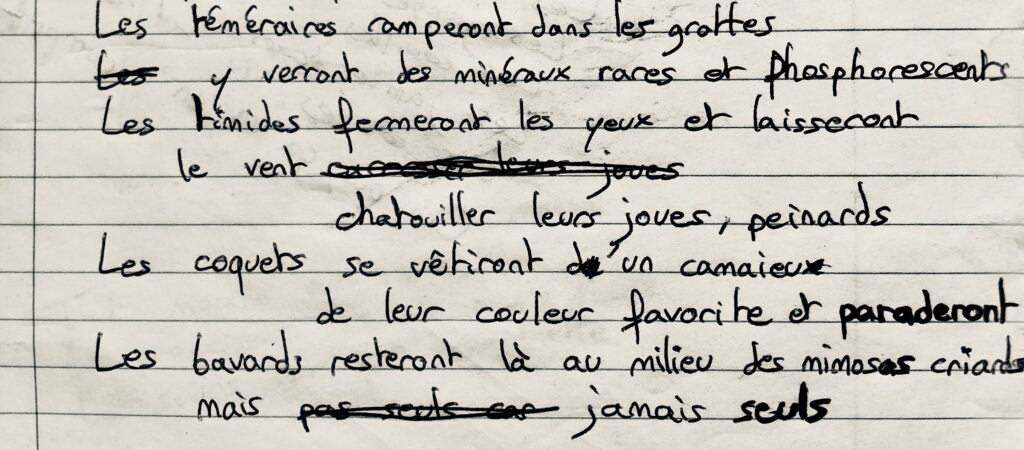 Les téméraires camperont dans les grottes
Les y verront des minéraux rares et phosphorescents
Les timides fermeront les yeux et laisseront
le vent caresser leurs joues
chatouiller leurs joues, peinards
Les coquets se vêtiront d'un camaieux
de leur couleur favorite et paraderont
Les bavards resteront là au milieu des mimosas criards
mais pas seuls car jamais seuls